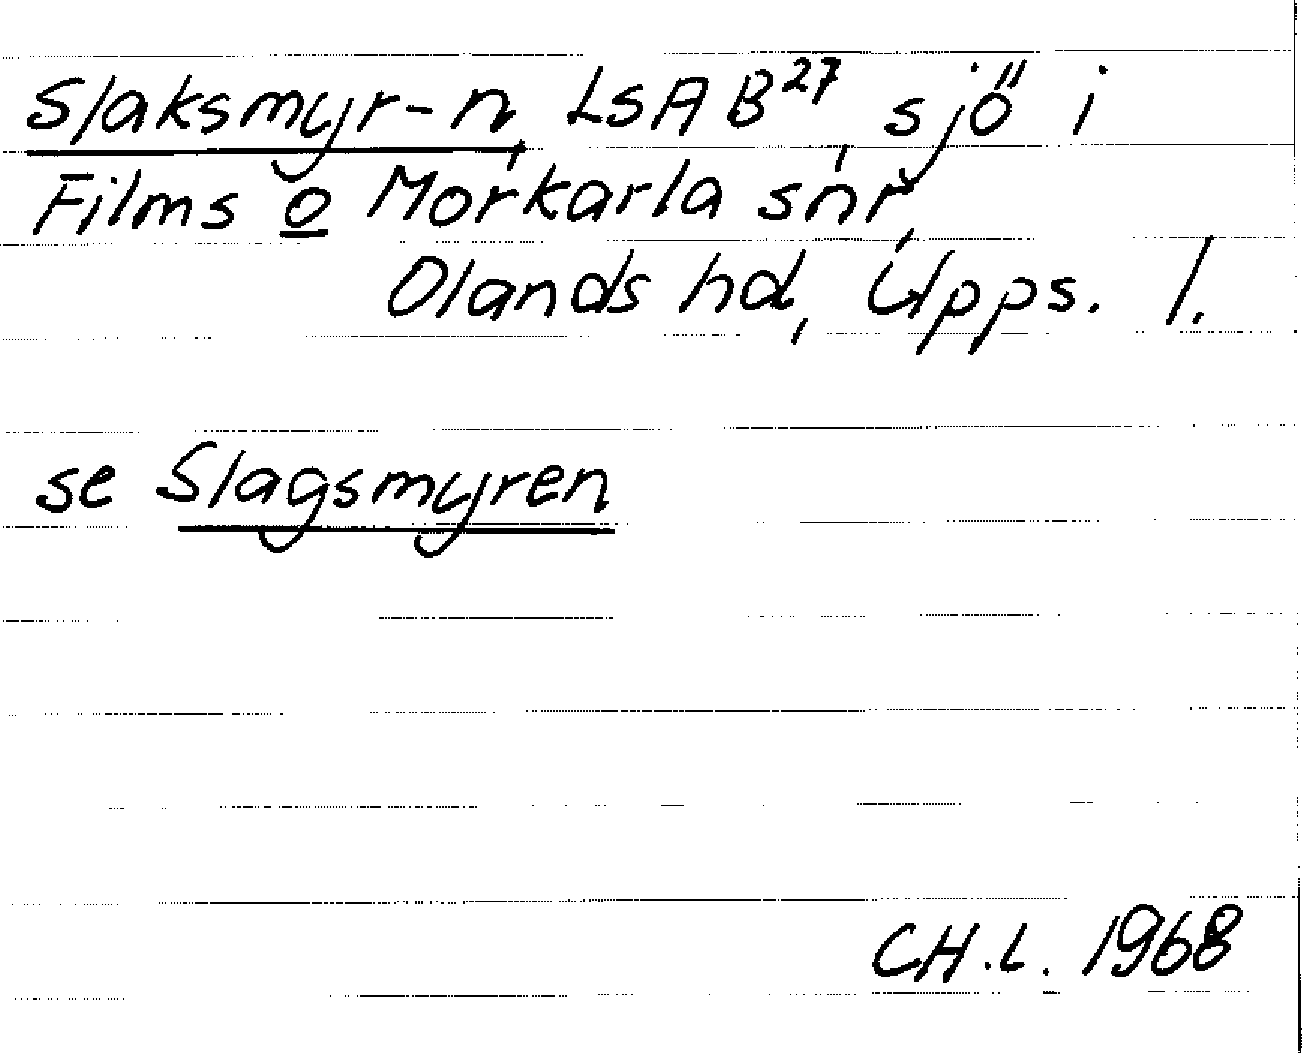 Slaksmyr-n, LSA B27, sjö i
Films o Morkarla snr,
Olands hd, Upps. l.
se Slagsmyren
CH.L. 1968